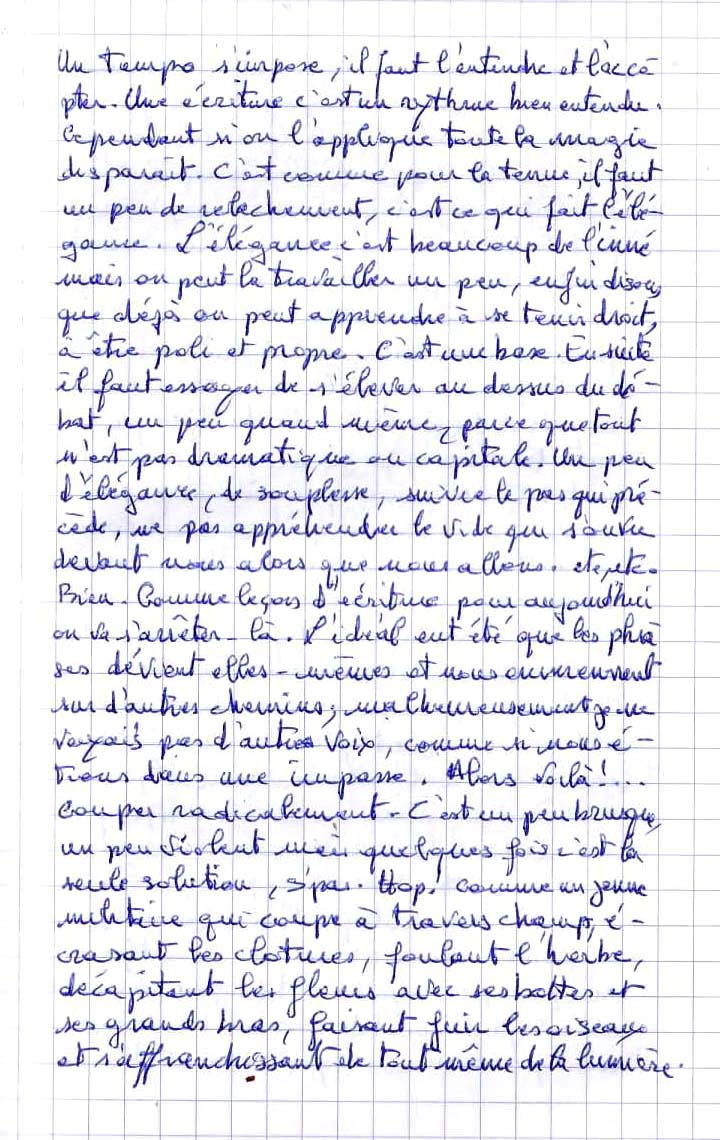 Un tempo s'impose, il faut l'entendre et l'accè
pter. Une écriture c'est un rythme bien entendu.
Cependant si on l'applique toute la magie
disparaît. C'est comme pour la tenue, il faut
un peu de relachement, c'est ce qui fait l'élé-
gance. L'élégance c'est beaucoup de l'inné
mais on peut la travailler un peu, enfin disons
que déjà on peut apprendre à se tenir droit,
à être poli et propre. C'est une base. Ensuite
il faut essayer de s'élever au dessus du dé-
bat, un peu quand même, parce que tout
n'est pas dramatique ou capitale. Un peu
d'élégance, de souplesse, suivre le pas qui pré-
cède, ne pas appréhender le vide qui s'ouvre
devant nous alors que nous allons. etc, etc.
Bien. Comme leçons d'écriture pour aujourd'hui
on va s'arrêter-là. L'idéal eut été que les phra
ses dévient elles-mêmes et nous emmennent
sur d'autres chemins; malheureusement je ne
voyais pas d'autres voix, comme si nous é-
tions dans une impasse. Alors voilà!...
couper radicalement. C'est un peu brusque,
un peu violent mais quelques fois c'est la
seule solution, s'pas. Hop! comme un jeune
militaire qui coupe à travers champ, é-
crasant les clotures, foulant l'herbe,
décapitant les fleurs avec ses bottes et
ses grands bras, faisant fuir les oiseaux
et s'affranchissant de tout même de la lumière.